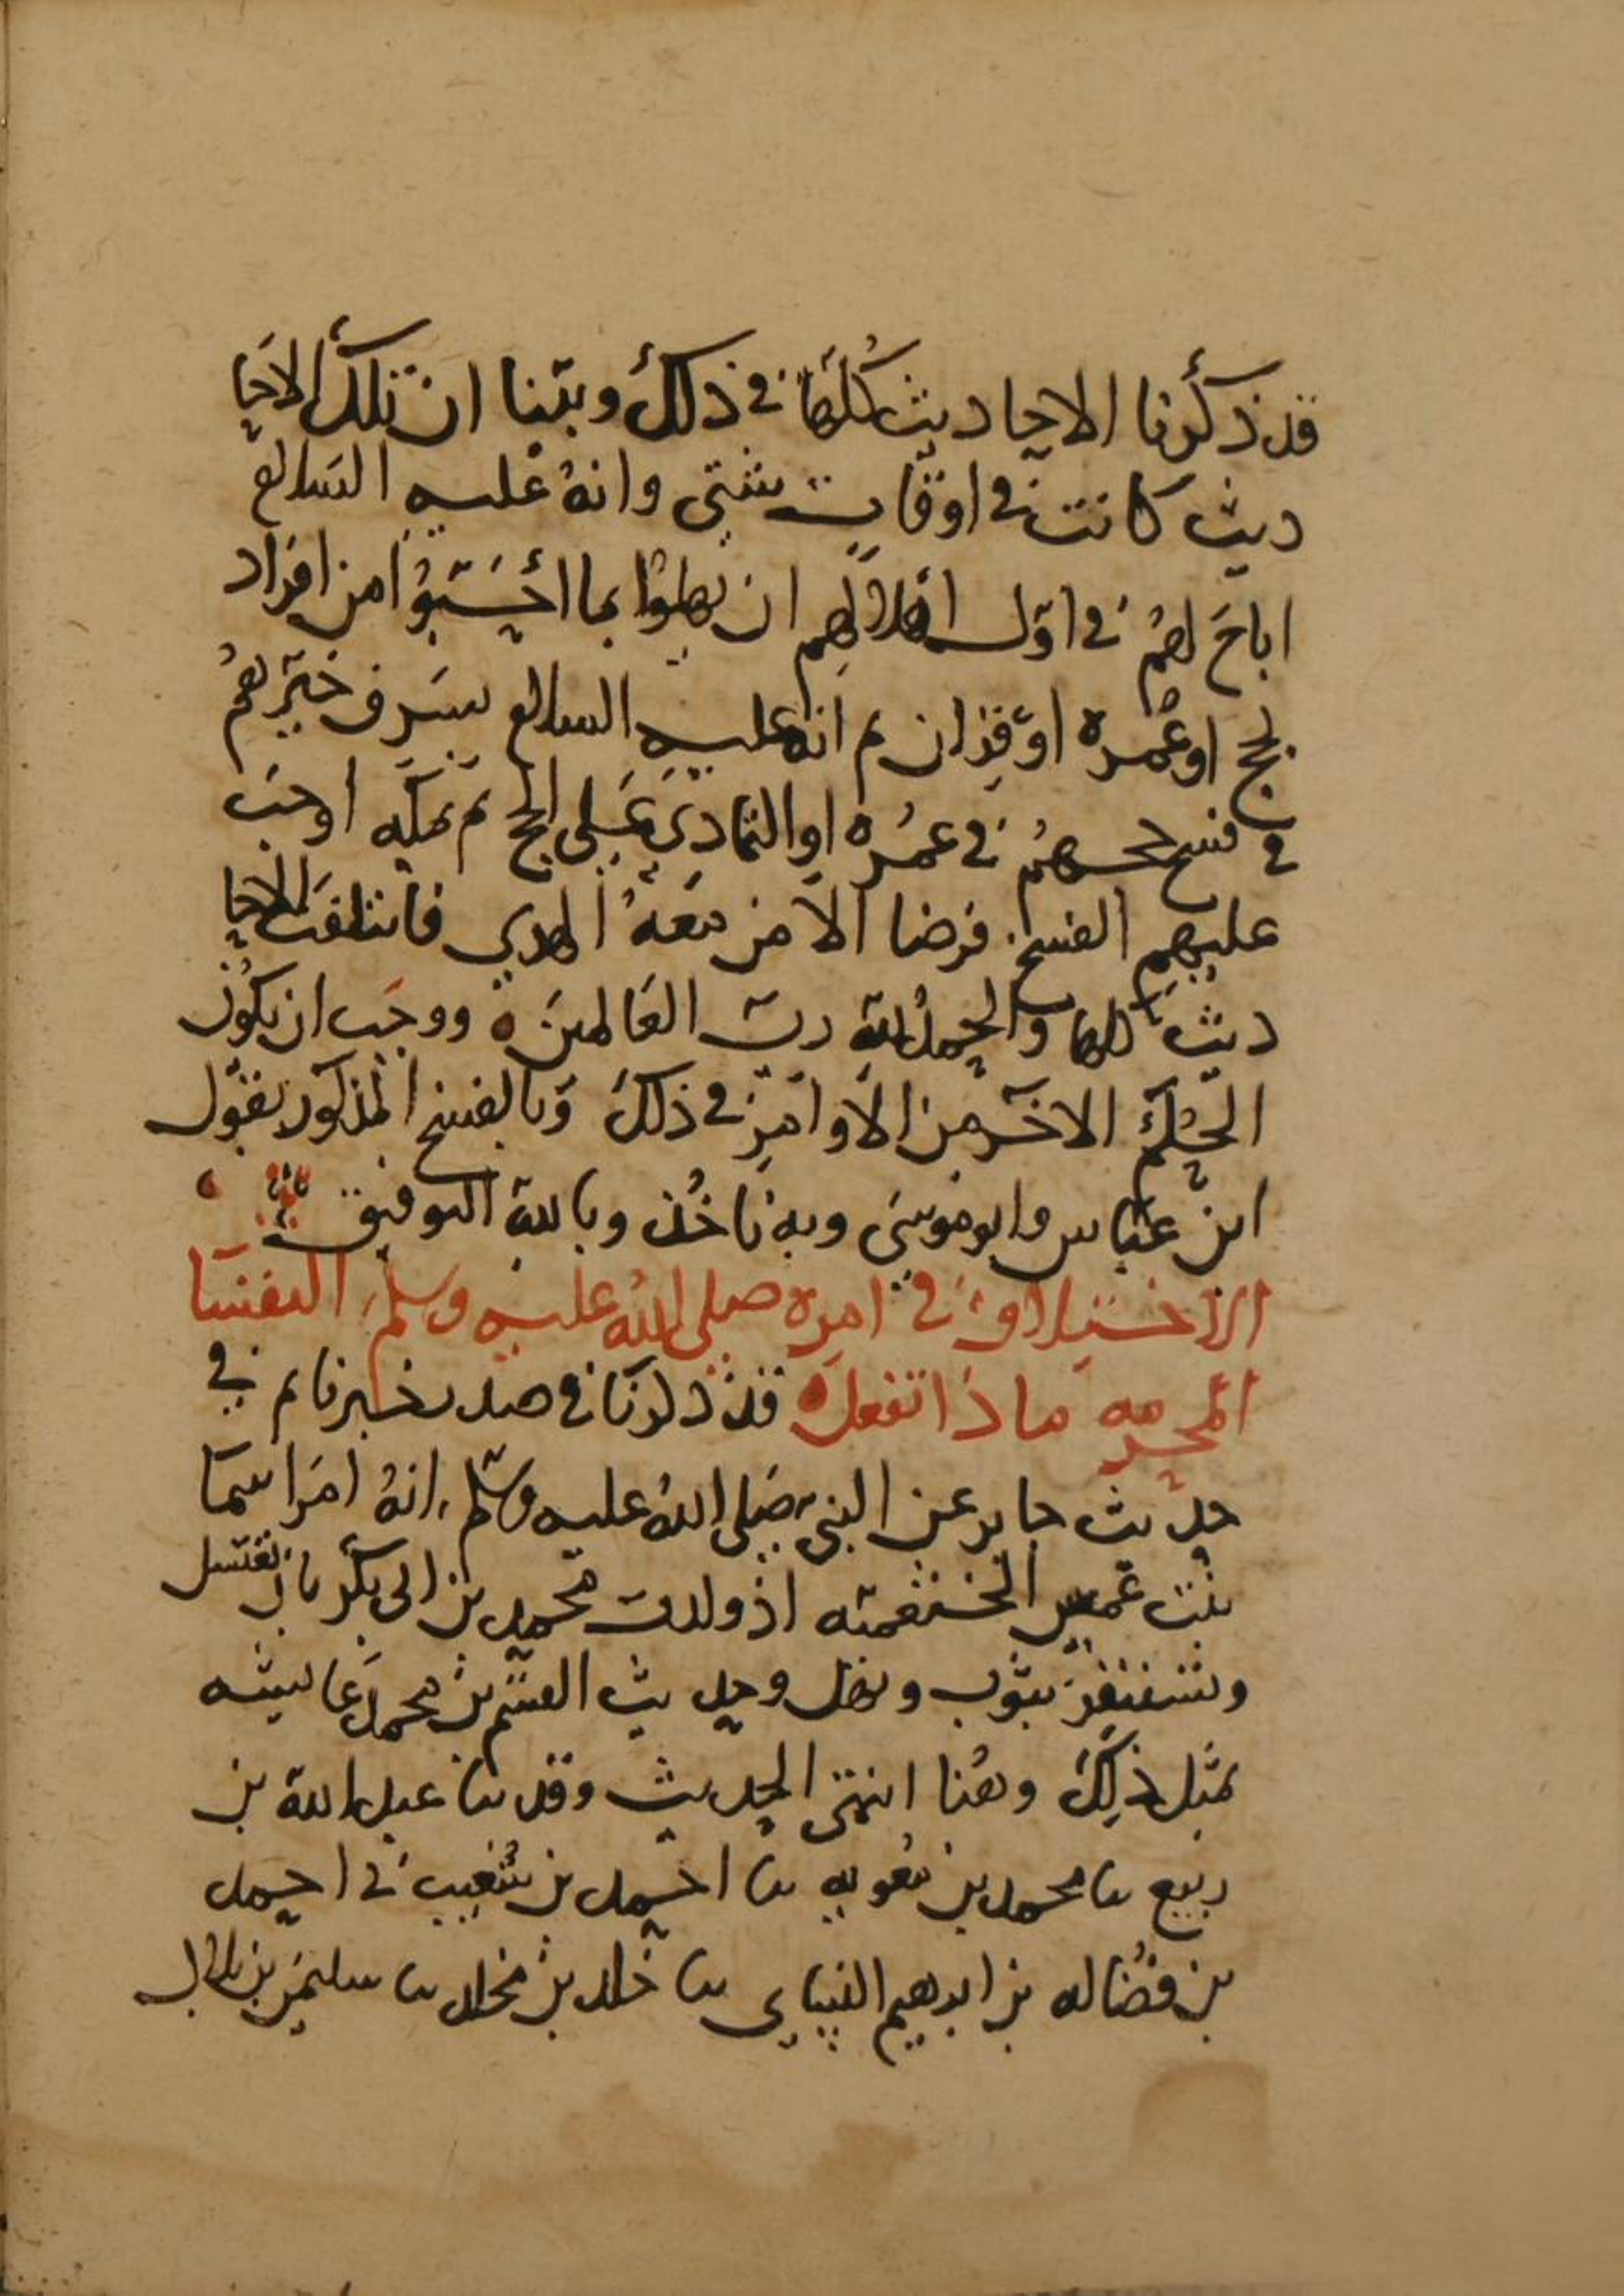 قد ذكرنا الاحاديث كلها في ذلك وبينا ان تلك الاحا
ديث كانت في اوقات شتى وانهُ عليه السلام
اباحَ لهمُ في اوّل اهلالهم ان يهلوا بما احَبّوُا من افراد
لحج او عُمره او قِران ثم انهُ عليه السلام بسَرِف خيّرَهمُ
في فسخ حجهمُ في عمُره او التمادِي عَلى الحج ثم بمكه اوجبَ
عليهم الفسخ فرضا الا من معَهُ الهدي فاتلفت الاحا
ديث كلها والحمدُ للهِ ربّ العَالمين ٥ ووجَب ان يكُون
الحُكم الاخَر من الاوامِر في ذلكَ وَبالفسخ المذكور نقوَل
ابن عباس وابو موسَى وبه ناخُذ وبالله التوفيق
الاختلاف في امره صلى اللهُ عليه وسلم النفسَا
المحرمه ماذا تفعل ٥ قد ذكرنا في صدر خبرنا ثم في
حديث جابر عن النبي صَلى اللهُ عليه وسَلم انهُ امَر اسمَا
بنت عُميس الخثعميّه اذ ولدت محمد بن ابي بكر بان تغتسل
وتستثفِر بثوب وتهل وحديث القسم بن محمد عَن عايشه
بمثل ذلِكَ وهُنا انتهى الحديث وقد نا عبد الله بن
ربيع نا محمد بن معُويه نا احمد بن شعُيب نى احمد
بن فضَاله بن ابرهيم النساي نا خالد بن مخلد نا سليمَن بن بلال